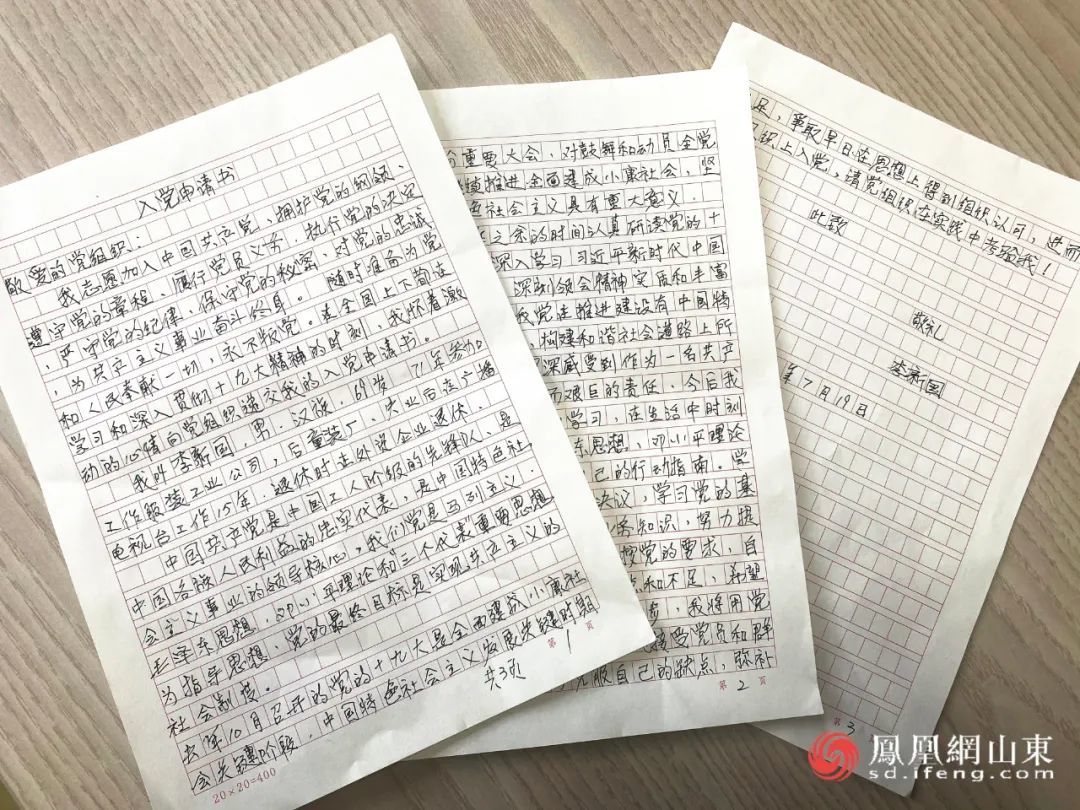 入党申请书
敬爱的党组织：
我志愿加入中国共产党，拥护党的纲领、
遵守党的章程、履行党员义务，执行党的决定
，严守党的纪律，保守党的秘密，对党的忠诚
，为共产主义事业奋斗终身。随时准备为党
和人民奉献一切，永不叛党。在全国上下简在
学习和深入贯彻十九大精神的时刻，我怀着激
动的心情向党组织递交我的入党申请书。
我叫李新国，男，汉族，69岁，71年参加
工作服装工业公司，后童装厂，失业后在广播
电视台工作15年，退休时在外资企业退休，
中国共产党是中国工人阶级的先锋队，是
中国各族人民利益的忠实代表，是中国特色社
会主义事业的领导核心，我们党是马列主义
毛泽东思想，邓小平理论和"三个代表"重要思想
为指导思想，党的最终目标是实现共产主义的
社会制度。
去年10月召开的党的十九大是全面建成小康社
会关键阶段，中国特色社会主义发展关键时期
共3页
第1页
20×20=400
分重要大会，对鼓舞和动员全党
续推进全面建成小康社会，坚
色社会主义具有重大意义。
之余的时间认真研读党的十
深入学习习近平新时代中国
深刻领会精神实质和丰富
我党在推进建设有中国特
构建和谐社会道路上所
深感受到作为一名共产
而艰巨的责任，今后我
学习，在生活中时刻
东思想，邓小平理论
己的行动指南。党
决议，学习党的基
务知识，努力提
按党的要求，自
点和不足，希望
，我将用党
接受党员和群
克服自己的缺点，弥补
第2页
足，争取早日在思想上得到组织认可，进而
组织上入党，请党组织在实践中考验我！
此致
敬礼
李新国
年7月19日
第3
鳳凰網山東
sd.ifeng.com